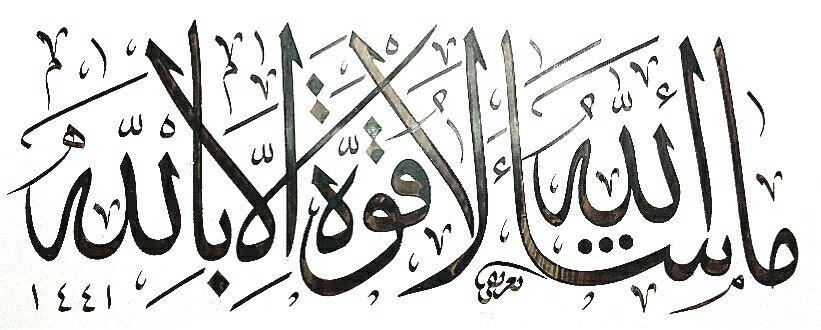 ما شاء الله لا قوة إلا بالله
١٤٤١